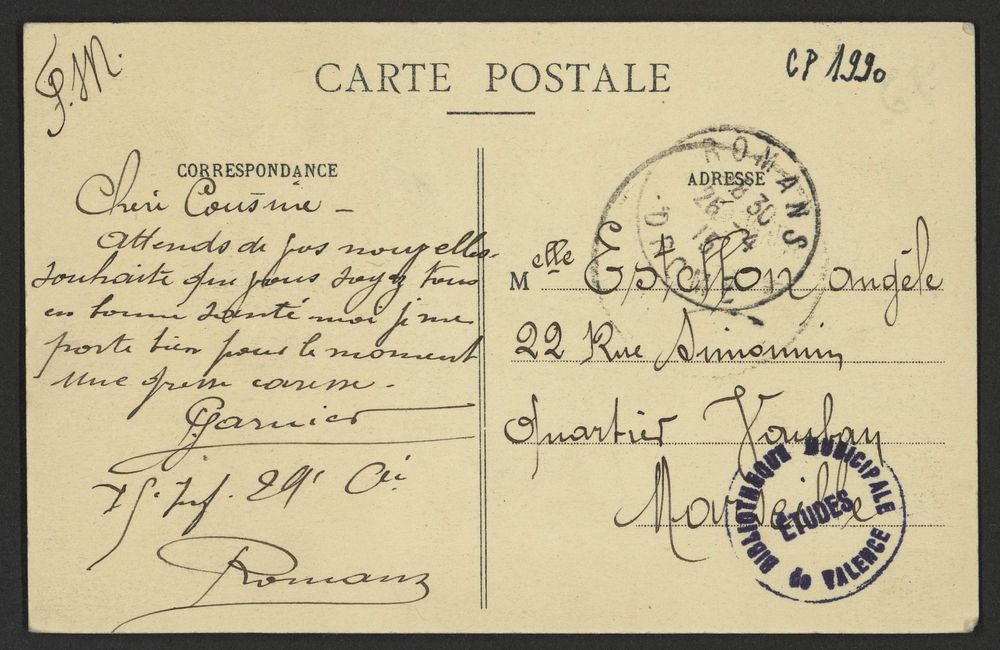 F.M.
CP 1990
CARTE POSTALE
CORRESPONDANCE
Chère Cousine –
Attends de vos nouvelles.
souhaite que vous soyez tous
en bonne santé moi je me
porte bien pour le moment
une grosse caresse –
Garnier
75e Inf. 29e Cie
Romans
ADRESSE
ROMANS
8 30
26 -4
DROME
Melle Estellon angèle
22 Rue Simonin
Quartier Vauban
Marseille
BIBLIOTHEQUE MUNICIPALE
ÉTUDES
de VALENCE